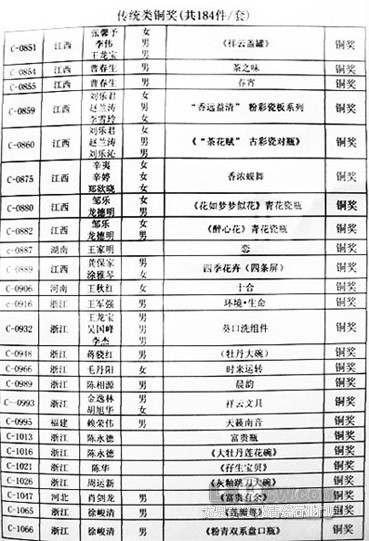 传统类铜奖(共184件/套)
C-0851 江西 张馨予 女 《祥云盖罐》 铜奖
李伟 男
王龙宝 男
C-0854 江西 曹春生 男 茶之味 铜奖
C-0855 江西 曹春生 男 春宵 铜奖
C-0859 江西 刘乐君 女 “香远益清” 粉彩瓷板系列 铜奖
赵兰涛 男
李雪玲 女
C-0860 江西 刘乐君 女 《“茶花赋” 古彩瓷对瓶》 铜奖
赵兰涛 男
刘乐沁 男
C-0875 江西 辛夷 女 香浓蝶舞 铜奖
辛婷 女
郑欲晓 女
C-0880 江西 邹乐 女 《花如梦梦似花》青花瓷瓶 铜奖
龙德明 男
C-0882 江西 邹乐 女 《醉心花》青花瓷瓶 铜奖
龙德明 男
C-0887 湖南 王家明 男 恋 铜奖
C-0889 江西 龚保家 男 四季花卉（四条屏） 铜奖
涂雅琴 女
C-0906 河南 王秋红 女 十合 铜奖
C-0916 浙江 王军强 男 环境·生命 铜奖
C-0932 浙江 王龙宝 男 葵口洗组件 铜奖
吴国峰 男
李杰 男
C-0948 浙江 蒋晓红 男 （牡丹大碗） 铜奖
C-0966 浙江 毛丹阳 女 时来运转 铜奖
C-0989 浙江 陈相源 男 晨韵 铜奖
C-0993 浙江 金逸林 男 祥云文具 铜奖
胡旭华 女
C-0995 福建 赖荣伟 男 天籁南音 铜奖
C-1013 浙江 陈永德 富贵瓶 铜奖
C-1016 浙江 陈永德 《大牡丹莲花碗》 铜奖
C-1021 浙江 陈华 《孖生宝贝》 铜奖
C-1026 浙江 周运新 《灰釉跳刀大碗》 铜奖
C-1047 河北 肖剑龙 男 《富贵有余》 铜奖
C-1065 浙江 徐峻清 男 《莲瓣尊》 铜奖
C-1066 浙江 徐峻清 男 《粉青双系盘口瓶》 铜奖